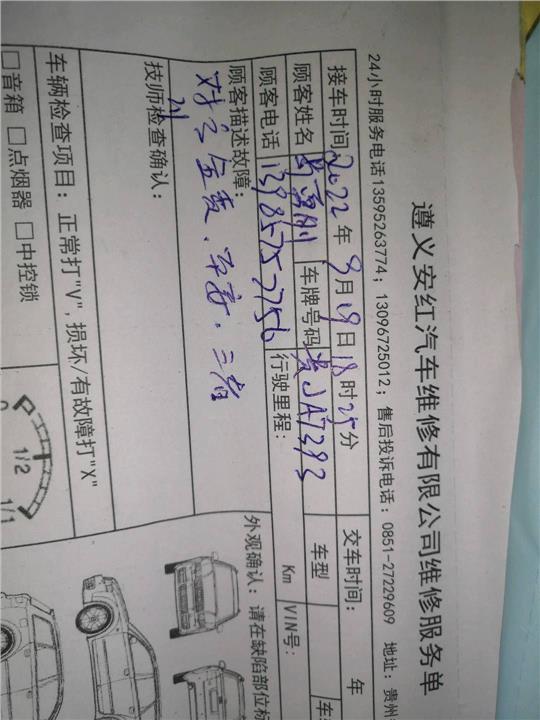 遵义安红汽车维修有限公司维修服务单
24小时服务电话13595263774；13096725012；售后投诉电话：0851-27229609 地址：贵州
接车时间 2022年9月19日18时25分 交车时间： 年
顾客姓名 车牌号码 贵JA7293 车型 车
顾客电话 13985757756 行驶里程： Km VIN号：
顾客描述故障： 外观确认：请在缺陷部位标
技师检查确认：
车辆检查项目：正常打"V"，损坏/有故障打"X"
□音箱 □点烟器 □中控锁
0 1/2 1/1